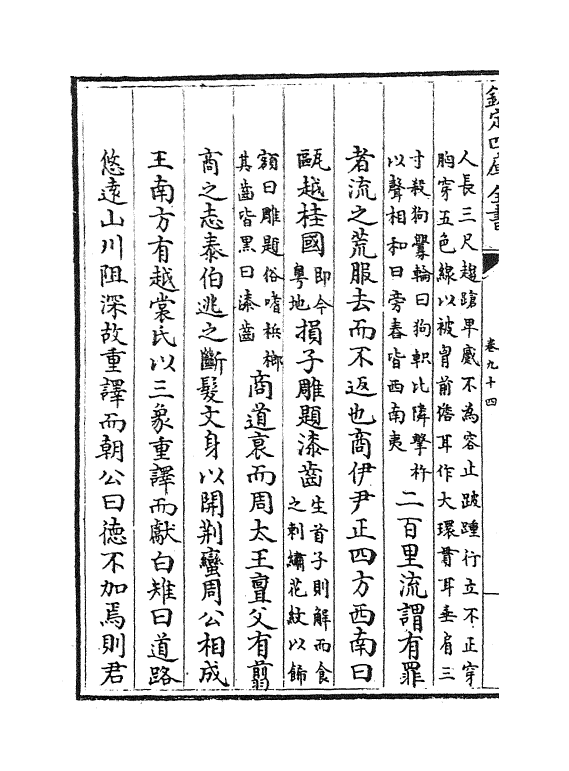 欽定四庫全書
卷九十四
人長三尺趨蹌卑蹙不為容止跛踵行立不正穿
胸穿五色線以被胷前儋耳作大環貫耳垂肩三
寸殺狗爨輪曰狗軹比隣擊杵
以聲相和曰旁舂皆西南夷
二百里流謂有罪
者流之荒服去而不返也商伊尹正四方西南曰
甌越桂國
即今
粵地
損子雕題漆齒
生首子則解而食
之刺繡花紋以飾
額曰雕題俗嗜梹榔
其齒皆黑曰漆齒
商道衰而周太王亶父有翦
商之志泰伯逃之斷髮文身以開荆蠻周公相成
王南方有越裳氏以三象重譯而獻白雉曰道路
悠遠山川阻深故重譯而朝公曰德不加焉則君